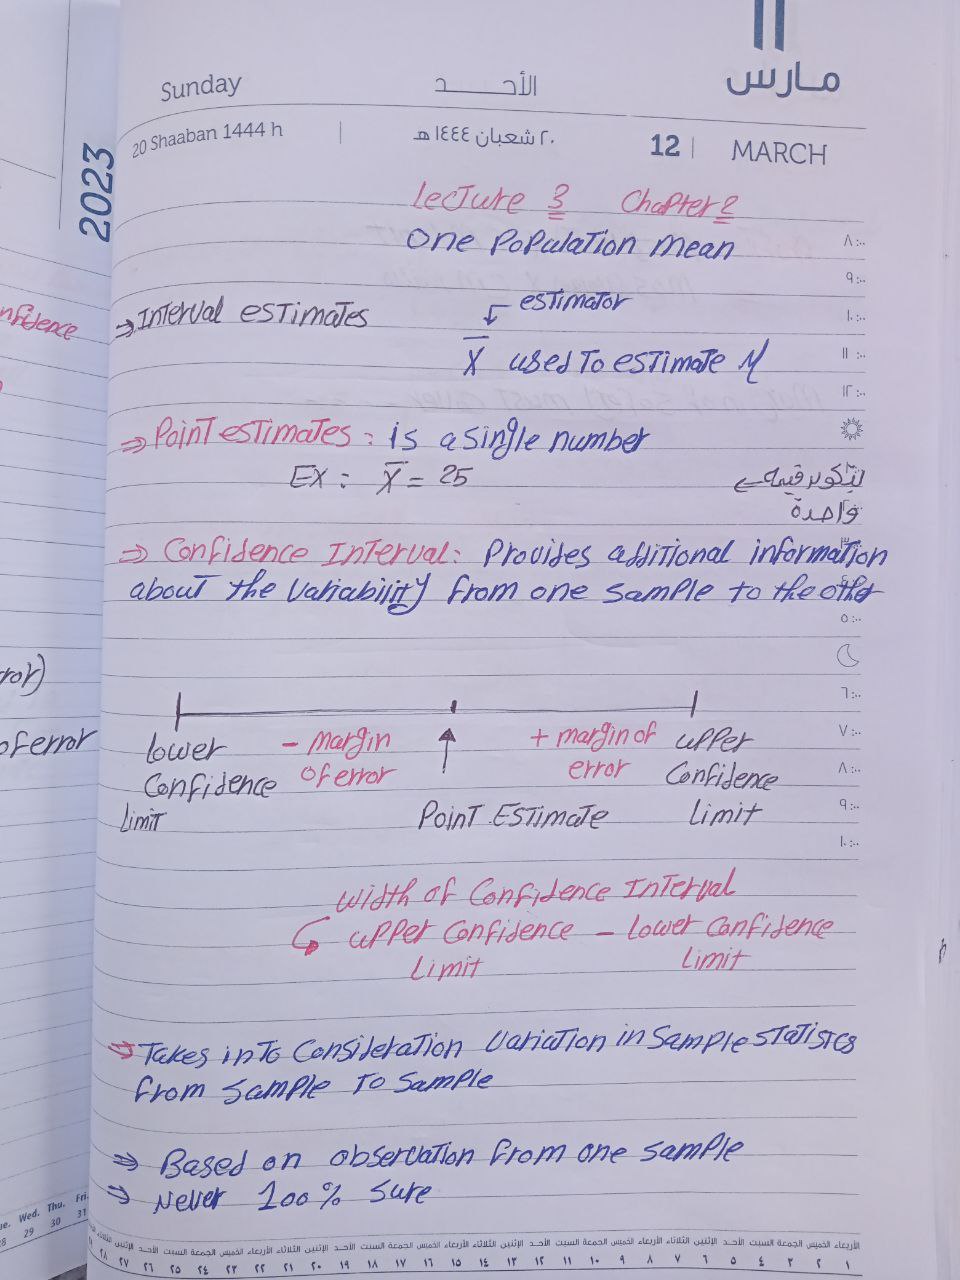 مارس
Sunday
الأحـــد
20 Shaaban 1444 h
٢٠ شعبان ١٤٤٤ هـ
12 | MARCH
2023
Lecture 3 Chapter 2
One Population mean
⇒ Interval estimates
estimator
X̄ used to estimate M
⇒ Point estimates : is a single number
EX : X̄ = 25
واحدة
⇒ Confidence Interval : Provides additional information
about the Variability from one sample to the other
Lower Confidence Limit
- margin of error
Point Estimate
+ margin of error
upper Confidence Limit
width of Confidence Interval
upper Confidence Limit - Lower Confidence Limit
⇒ Takes into Consideration Variation in Sample statistics
from sample to sample
⇒ Based on observation from one sample
⇒ Never 100% sure
٨:٠٠
٩:٠٠
١٠:٠٠
١١:٠٠
١٢:٠٠
٥:٠٠
٦:٠٠
٧:٠٠
٨:٠٠
٩:٠٠
١٠:٠٠
nfidence
ror)
of error
Wed. Thu. Fri.
29 30 31
الأربعاء الخميس الجمعة السبت الأحـد الإثنين الثلاثاء الأربعاء الخميس الجمعة السبت الأحـد الإثنين الثلاثاء الأربعاء الخميس الجمعة السبت الأحـد الإثنين الثلاثاء الأربعاء الخميس الجمعة السبت الأحـد الإثنين
١ ٢ ٣ ٤ ٥ ٦ ٧ ٨ ٩ ١٠ ١١ ١٢ ١٣ ١٤ ١٥ ١٦ ١٧ ١٨ ١٩ ٢٠ ٢١ ٢٢ ٢٣ ٢٤ ٢٥ ٢٦ ٢٧ ٢٨